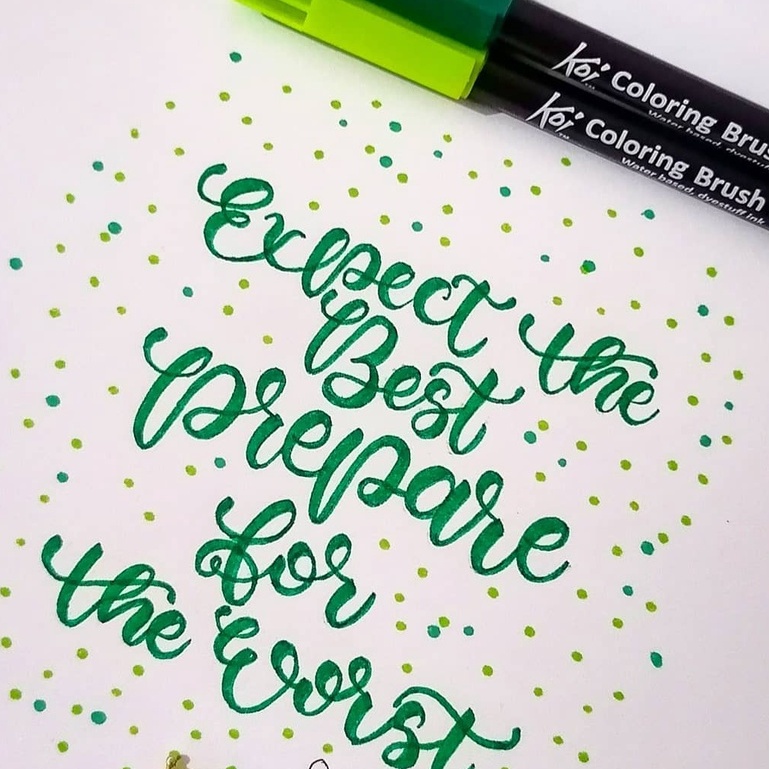 Koi Coloring Brus
Water based, dyestuf
Koi Coloring Brush
™ Water based, dyestuff ink
Expect the
Best
Prepare
for
the Worst